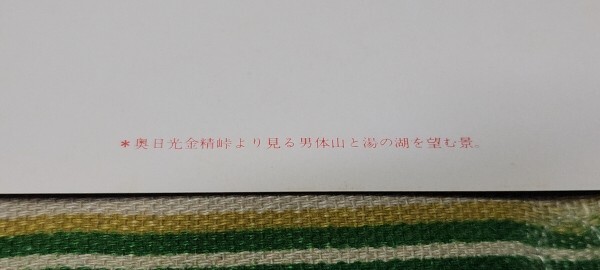 ＊奥日光金精峠より見る男体山と湯の湖を望む景。